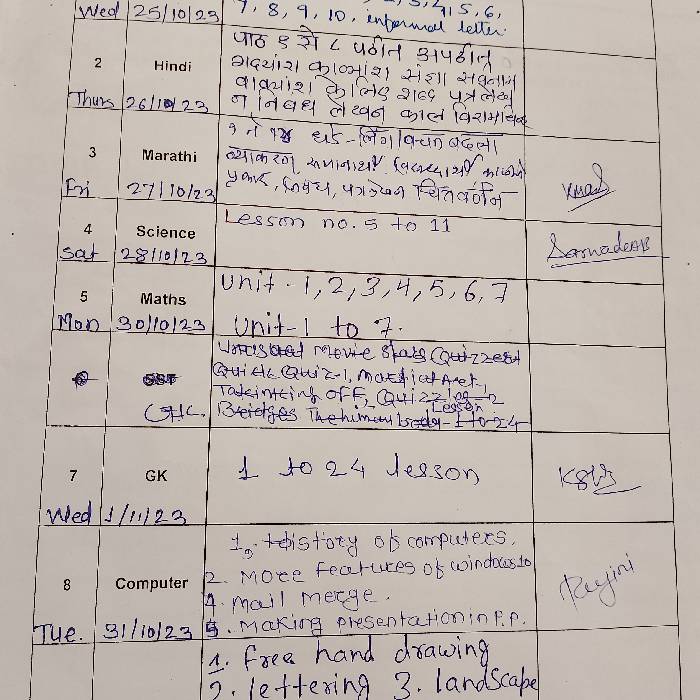 Wed 25/10/23 7, 8, 9, 10, informal letter.
2 Hindi पाठ १ से ८ पठीत अपठीत
गदयांश काव्यांश संज्ञा सर्वनाम
वाक्यांश के लिए शब्द पत्रलेखन
Thurs 26/10/23 निबंध लेखन काल विरामचिन्ह
3 Marathi
लिंग वचन बदला
व्याकरण समानार्थी विरुध्दार्थी काळाचे
Fri 27/10/23 प्रकार, निबंध, पत्रलेखन चित्रवर्णन
4 Science Lesson no. 5 to 11
Sat 28/10/23
5 Maths Unit - 1, 2, 3, 4, 5, 6, 7
Mon 30/10/23 Unit-1 to 7.
Movie Stars Quizzes
Quick Quiz-1,
off, Quizz
G.K. Bridges The human body Lesson 1 to 24
7 GK 1 to 24 lesson
Wed 1/11/23
8 Computer 1. History of computers.
2. More features of windows 10
4. mail merge.
Tue. 31/10/23 5. Making presentation in P.P.
Rajini
1. free hand drawing
2. lettering 3. landscape